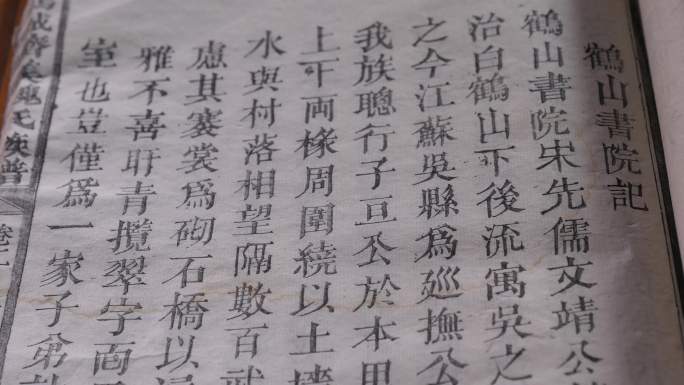 鶴山書院記
鶴山書院宋先儒文靖公
治白鶴山下後流寓吳之
之今江蘇吳縣為巡撫公
我族聰行子亘公於本里
上下両椽周圍繞以土墻
水與村落相望隔數百武
慮其褰裳為砌石橋以
雅不喜盱青攬翠字
室也豈僅為一家子弟計
成齊魏氏族譜